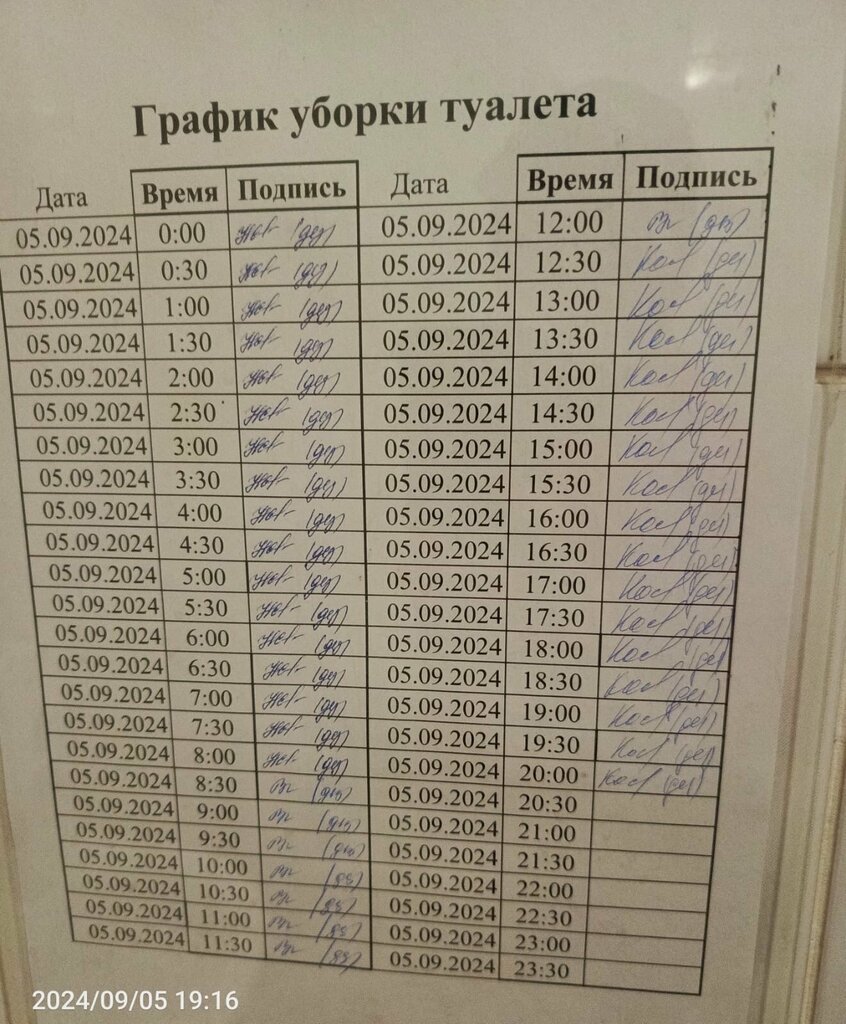 График уборки туалета
Дата Время Подпись Дата Время Подпись
05.09.2024 0:00 05.09.2024 12:00
05.09.2024 0:30 05.09.2024 12:30
05.09.2024 1:00 05.09.2024 13:00
05.09.2024 1:30 05.09.2024 13:30
05.09.2024 2:00 05.09.2024 14:00
05.09.2024 2:30 05.09.2024 14:30
05.09.2024 3:00 05.09.2024 15:00
05.09.2024 3:30 05.09.2024 15:30
05.09.2024 4:00 05.09.2024 16:00
05.09.2024 4:30 05.09.2024 16:30
05.09.2024 5:00 05.09.2024 17:00
05.09.2024 5:30 05.09.2024 17:30
05.09.2024 6:00 05.09.2024 18:00
05.09.2024 6:30 05.09.2024 18:30
05.09.2024 7:00 05.09.2024 19:00
05.09.2024 7:30 05.09.2024 19:30
05.09.2024 8:00 05.09.2024 20:00
05.09.2024 8:30 05.09.2024 20:30
05.09.2024 9:00 05.09.2024 21:00
05.09.2024 9:30 05.09.2024 21:30
05.09.2024 10:00 05.09.2024 22:00
05.09.2024 10:30 05.09.2024 22:30
05.09.2024 11:00 05.09.2024 23:00
05.09.2024 11:30 05.09.2024 23:30
2024/09/05 19:16